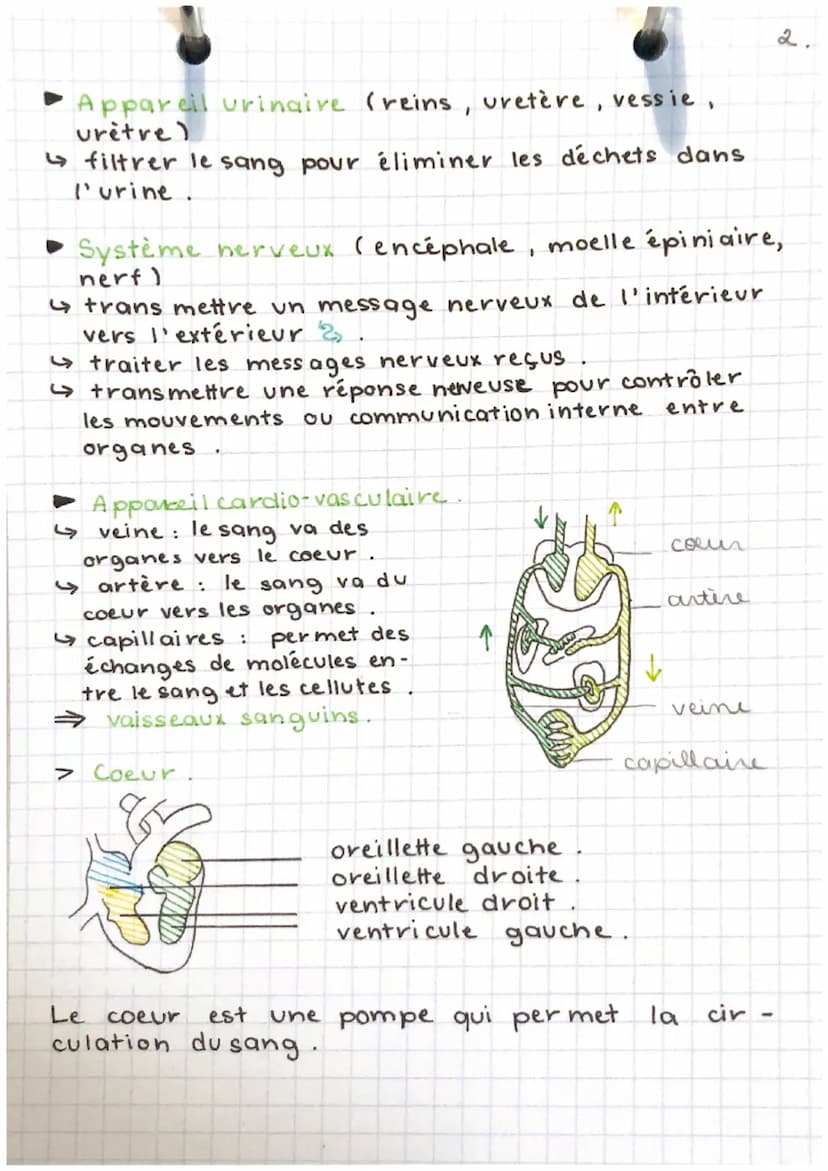 2.
► Appareil urinaire (reins, uretère, vessie,
urètre)
↳ filtrer le sang pour éliminer les déchets dans
l'urine.
► Système nerveux (encéphale, moelle épiniaire,
nerf)
↳ transmettre un message nerveux de l'intérieur
vers l'extérieur.
↳ traiter les messages nerveux reçus.
↳ transmettre une réponse nerveuse pour contrôler
les mouvements ou communication interne entre
organes.
► Appareil cardio-vasculaire.
↳ veine : le sang va des
organes vers le coeur.
↳ artère : le sang va du
coeur vers les organes.
↳ capillaires : permet des
échanges de molécules en-
tre le sang et les cellutes.
⇒ vaisseaux sanguins.
coeur
artère
veine
capillaire
> Coeur.
oreillette gauche.
oreillette droite.
ventricule droit.
ventricule gauche.
Le coeur est une pompe qui permet la cir-
culation du sang.